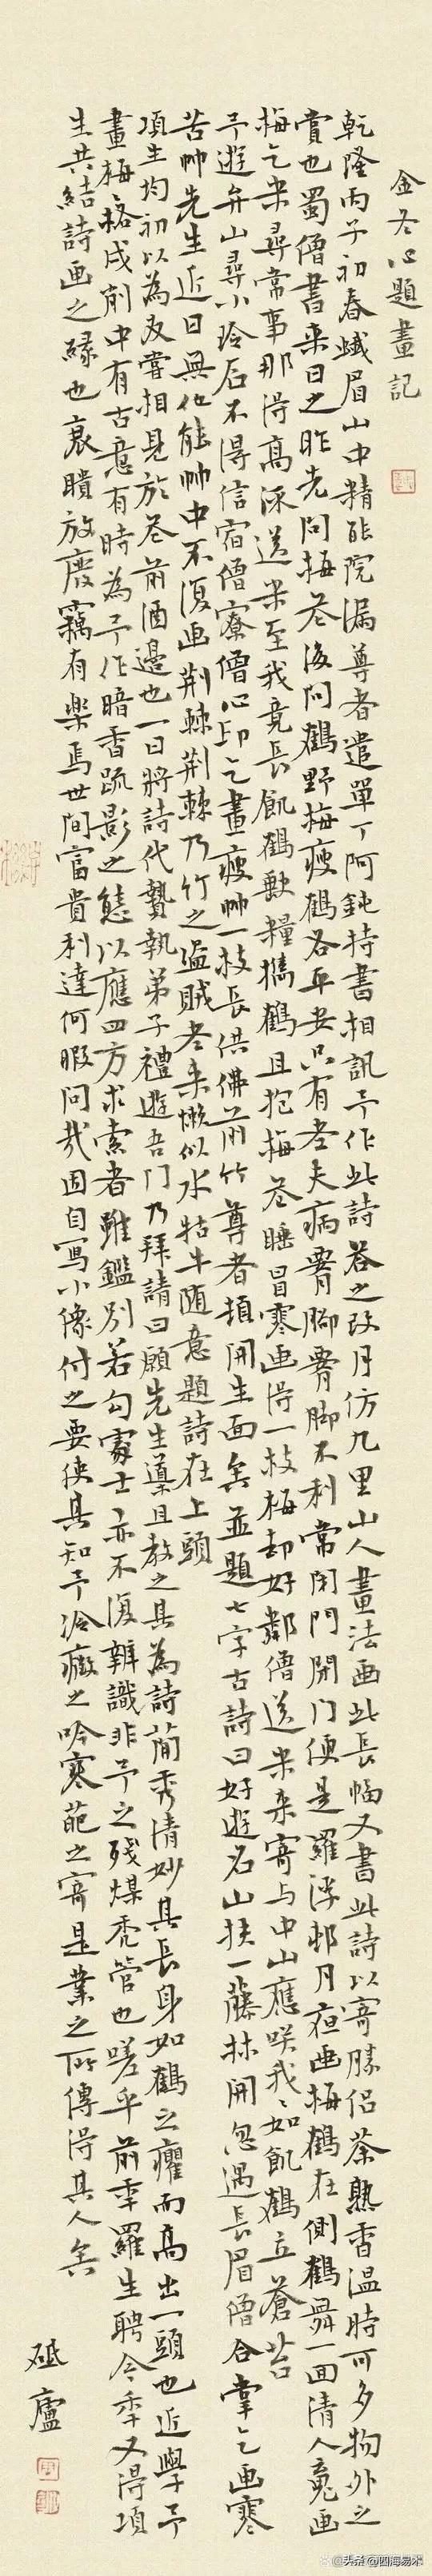 金冬心題畫記
乾隆丙子初春蛾眉山中精能院漏尊者遣單丁阿鈍持書相訊予作此詩答之改月仿九里山人畫法画此長幅又書此詩以寄勝侶茶熟香溫時可多物外之
賞也蜀僧書來日之昨先問梅花後問鶴野梅瘦鶴各平安只有老夫病脚不利常閉門閉门便是羅浮邨月夜画梅鶴在側鶴舞一面清人魂画
梅乞米尋常事那得高流送米至我竟長飢鶴缺糧攜鶴且抱梅花睡冒寒画得一枝梅却好鄰僧送米来寄与中山應咲我我如飢鶴立蒼苔
予遊弁山尋小玲石不得信宿僧寮僧心印乞畫瘦竹一枝長供佛前竹尊者頓開生面矣並題七字古詩曰好遊名山扶一藤林開忽遇長眉僧合掌乞画寒
苦竹先生近日無他能竹中不復画荆棘荆棘乃竹之盗賊老来懒似水牯牛随意題詩在上頭
項生均初以為友嘗相見於花前酒邊也一日將詩代贄執弟子禮遊吾门乃拜請曰願先生導且教之其為詩簡秀清妙其長身如鶴之癯而高出一頭也近學予
畫梅梅格戍削中有古意有時為予作暗香疏影之態以應四方求索者雖鑑別若勾處士亦不復辨識非予之殘煤秃管也嗟乎前年羅生聘今年又得項
生共結詩画之緣也衰聵放廢竊有樂焉世间富貴利達何暇问哉因自寫小像付之要使其知予冷癡之吟寒葩之寄是業之所傳得其人矣
砥廬
头条@四海易术